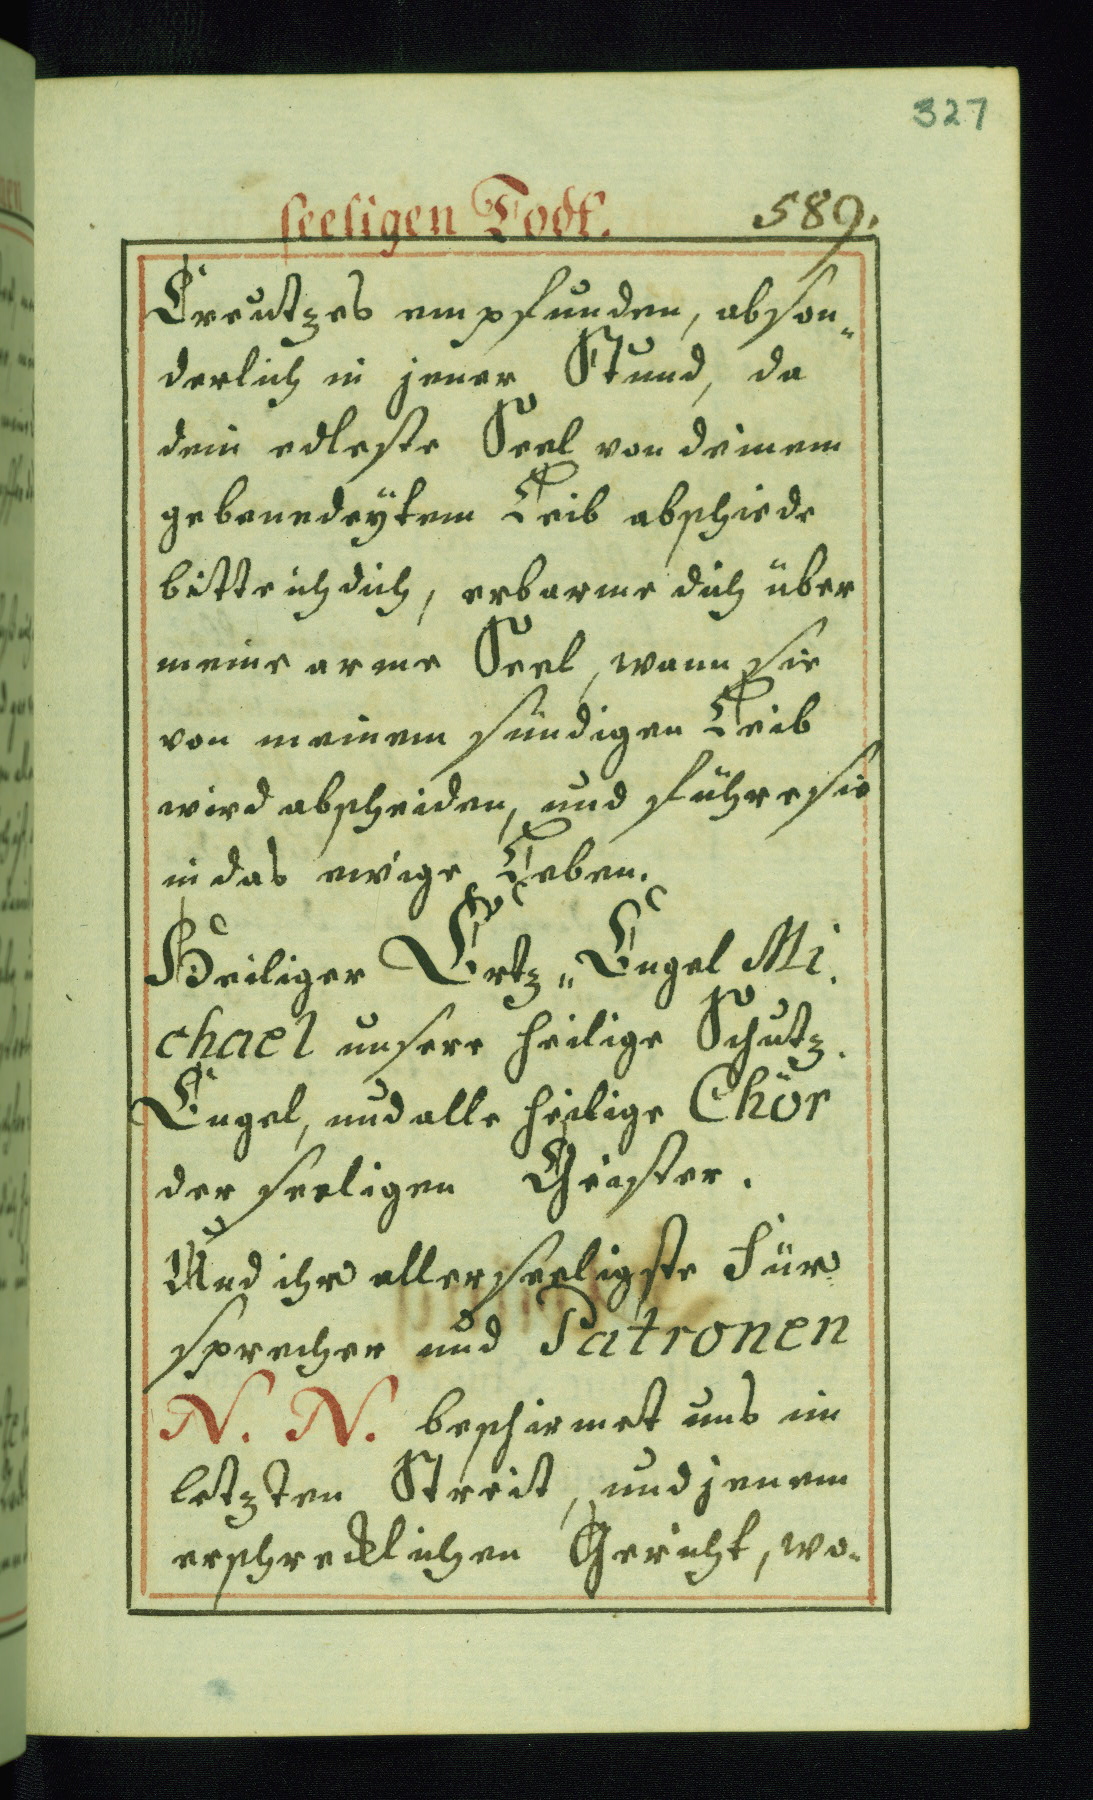 327
seeligen Todt. 589.
Creützes empfunden, abson„
derlich in jener Stund, da
dein edleste Seel von deinem
gebenedeÿtem Leib abschiede
bitte ich dich, erbarme dich über
meine arme Seel, wann sie
von meinem sündigen Leib
wird abscheiden, und führe sie
in das ewige Leben.
Heiliger Ertz„Engel Mi.
chael unsere heilige Schutz.
Engel, und alle heilige Chör
der seeligen Geister.
Und ihr allerseeligste Für
sprecher und Patronen
N. N. beschirmet uns im
letzten Streit, und jenem
erschrecklichen Gericht, wo-